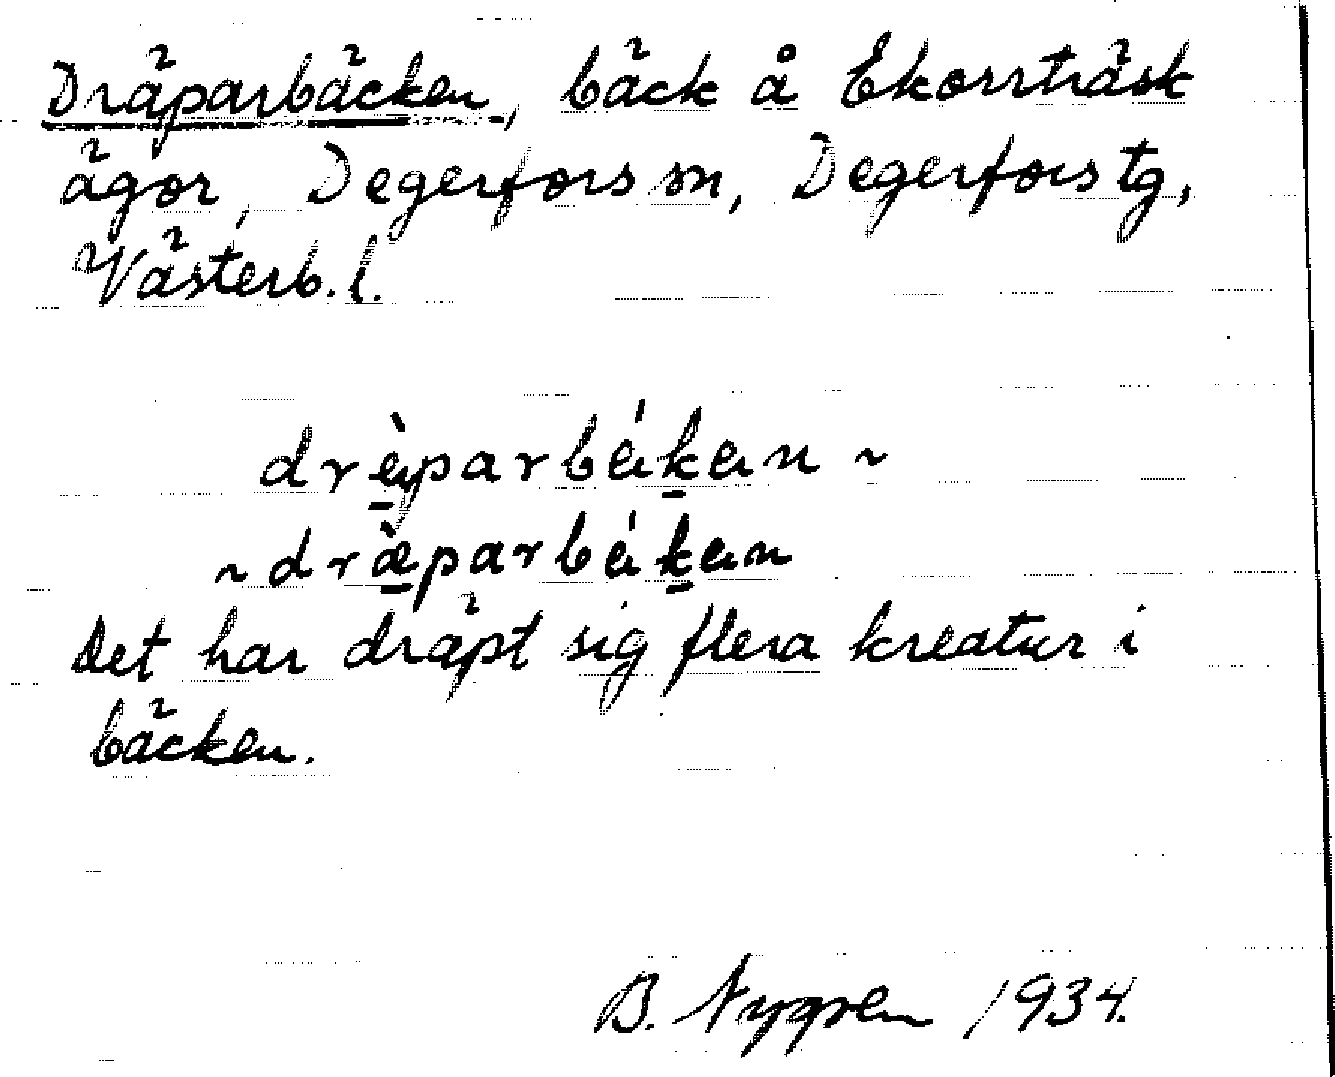 Dräparbäcken, bäck å Ekorrträsk
ägor, Degerfors sn, Degerfors tg,
Västerb. l.
drèparbéken ~
~ dræ̀parbéken
Det har dräpt sig flera kreatur i
bäcken.
B. Nygren 1934.